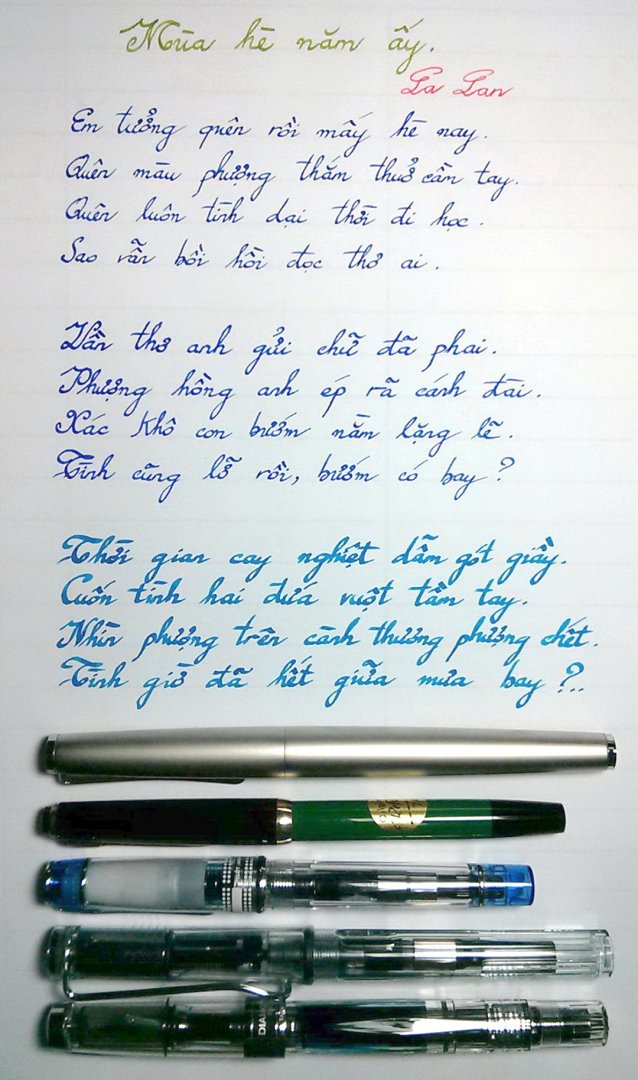 Mùa hè năm ấy.
La Lan
Em tưởng quên rồi mấy hè nay.
Quên màu phượng thắm thuở cầm tay.
Quên luôn tình dại thời đi học.
Sao vẫn bồi hồi đọc thơ ai.
Vần thơ anh gửi chữ đã phai.
Phượng hồng anh ép rã cánh đài.
Xác khô con bướm nằm lặng lẽ.
Tình cũng lỡ rồi, bướm có bay?
Thời gian cay nghiệt dẫm gót giầy.
Cuốn tình hai đứa vuột tầm tay.
Nhìn phượng trên cành thương phượng chết.
Tình giờ đã hết giữa mưa bay?..